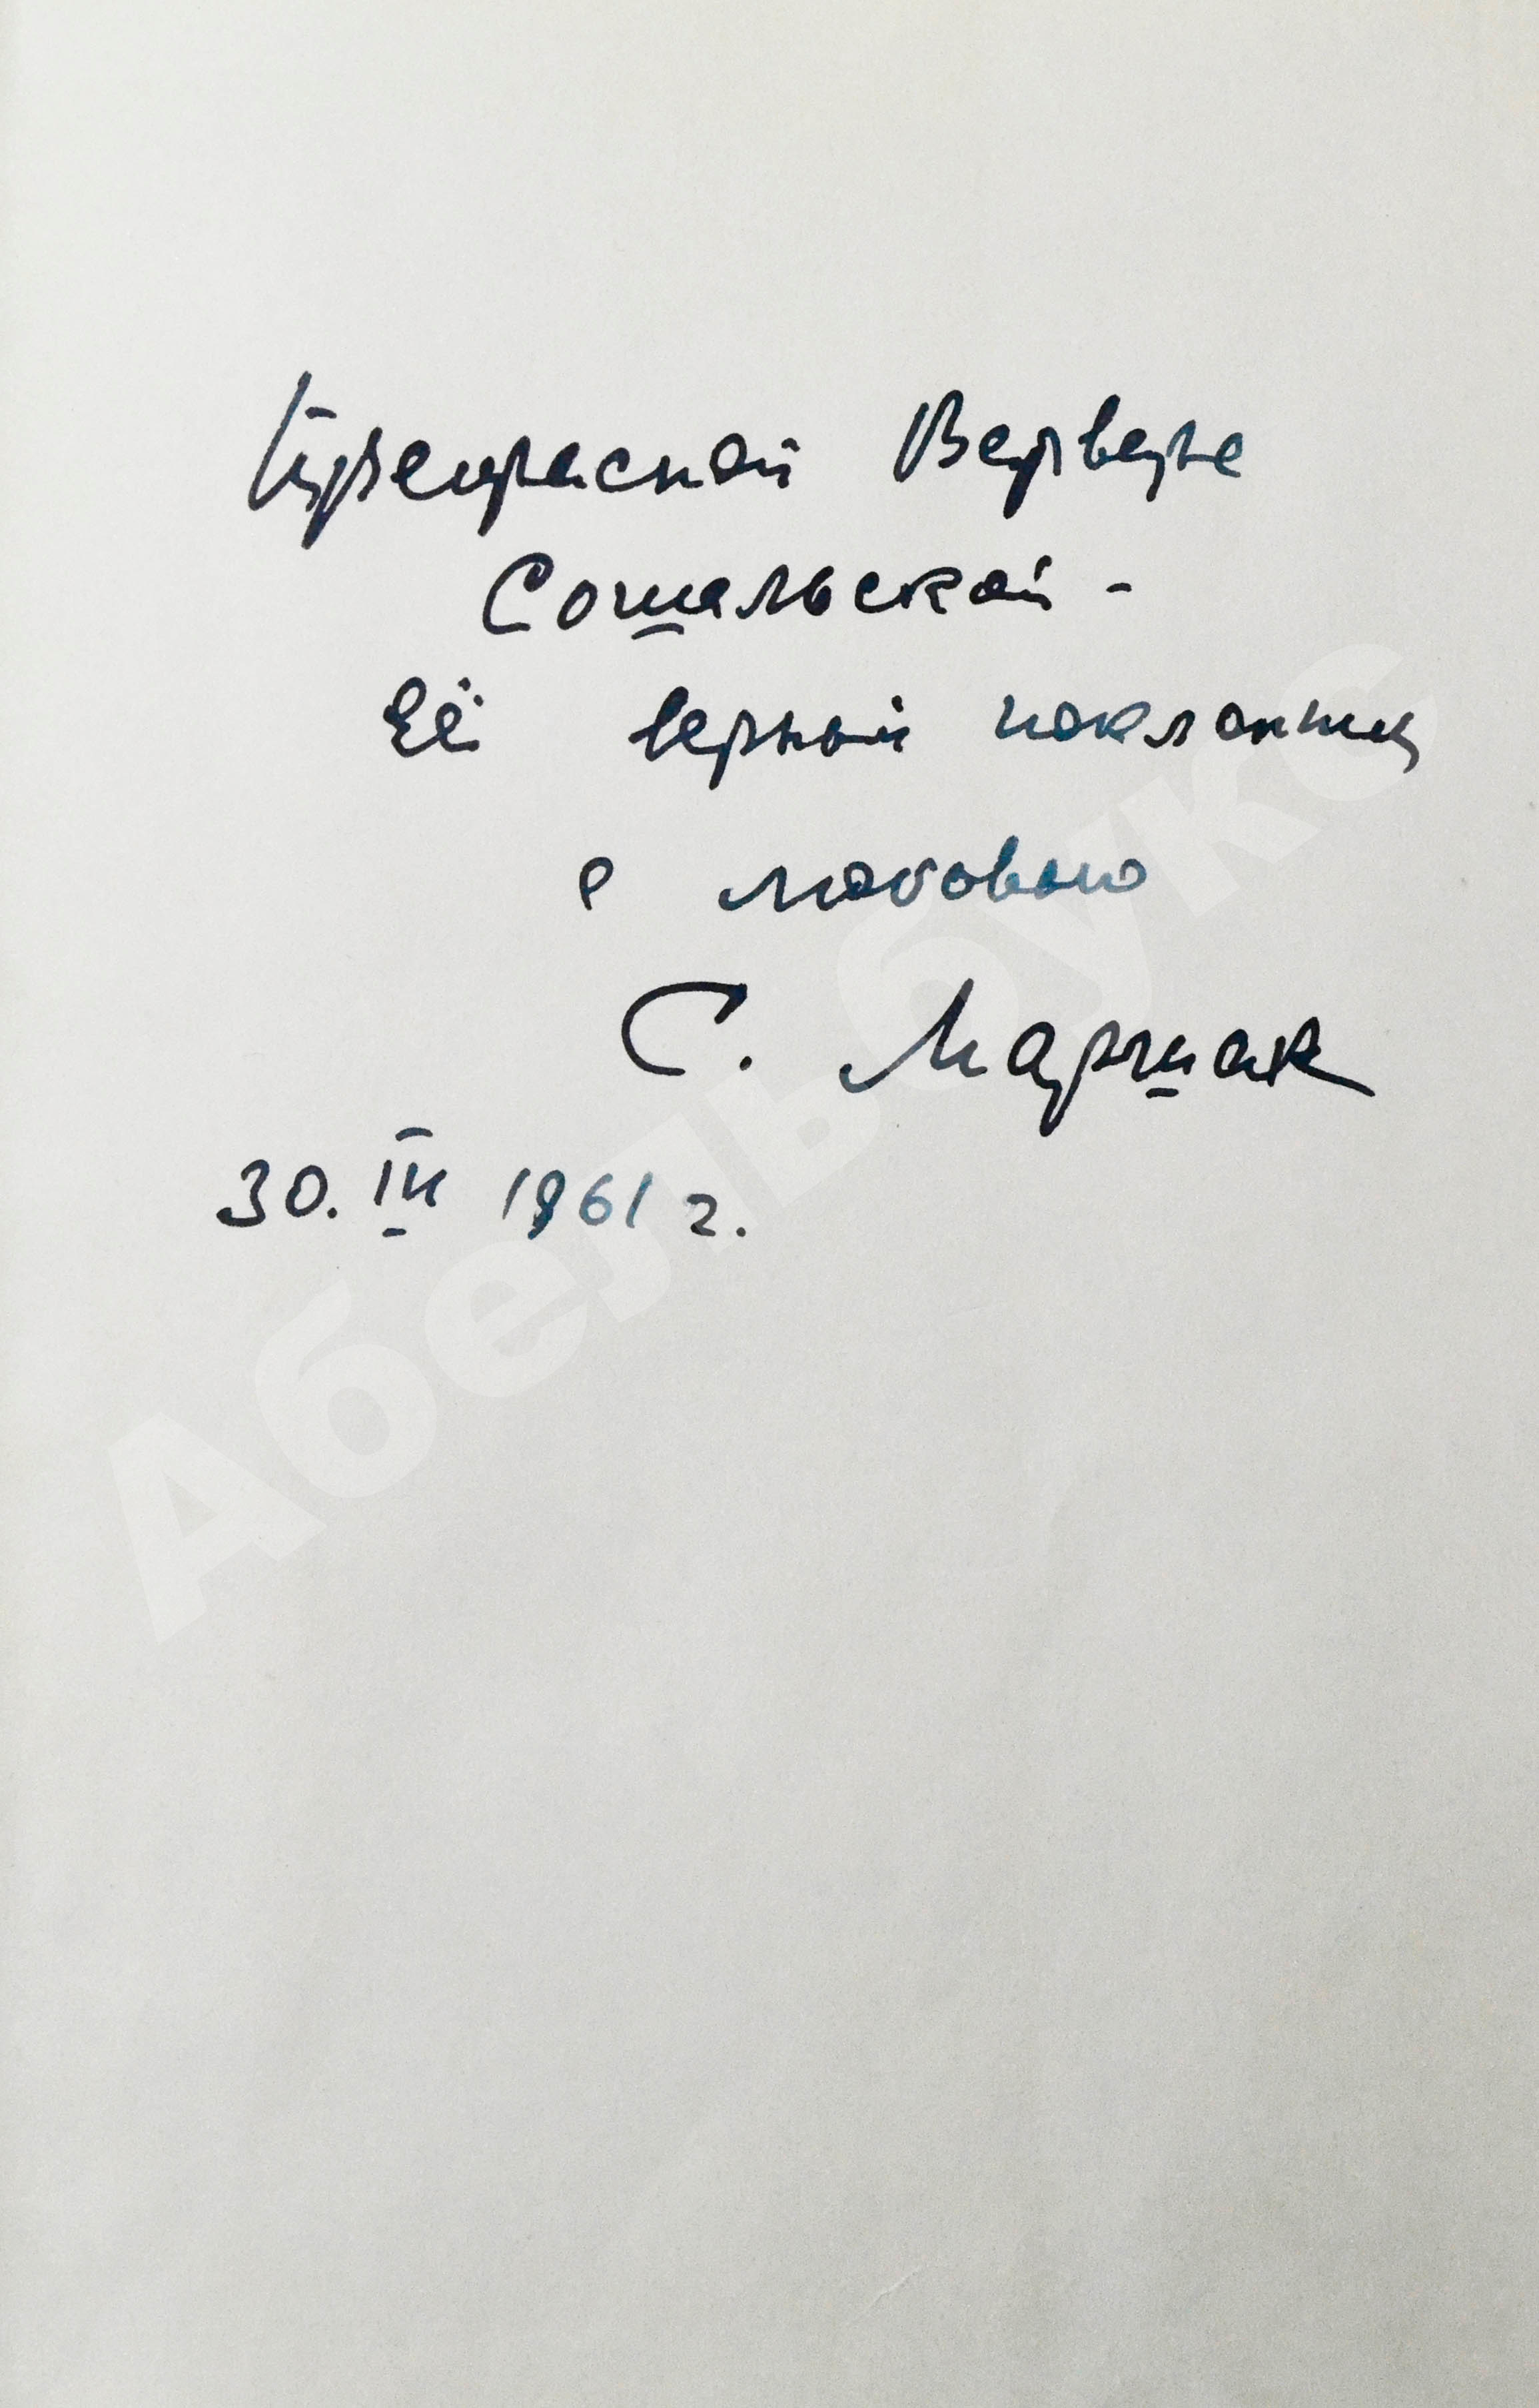 Прекрасной Варваре
Сошальской -
Её верный поклонник
с любовью
С. Маршак
30. III 1961 г.
Абельбукс